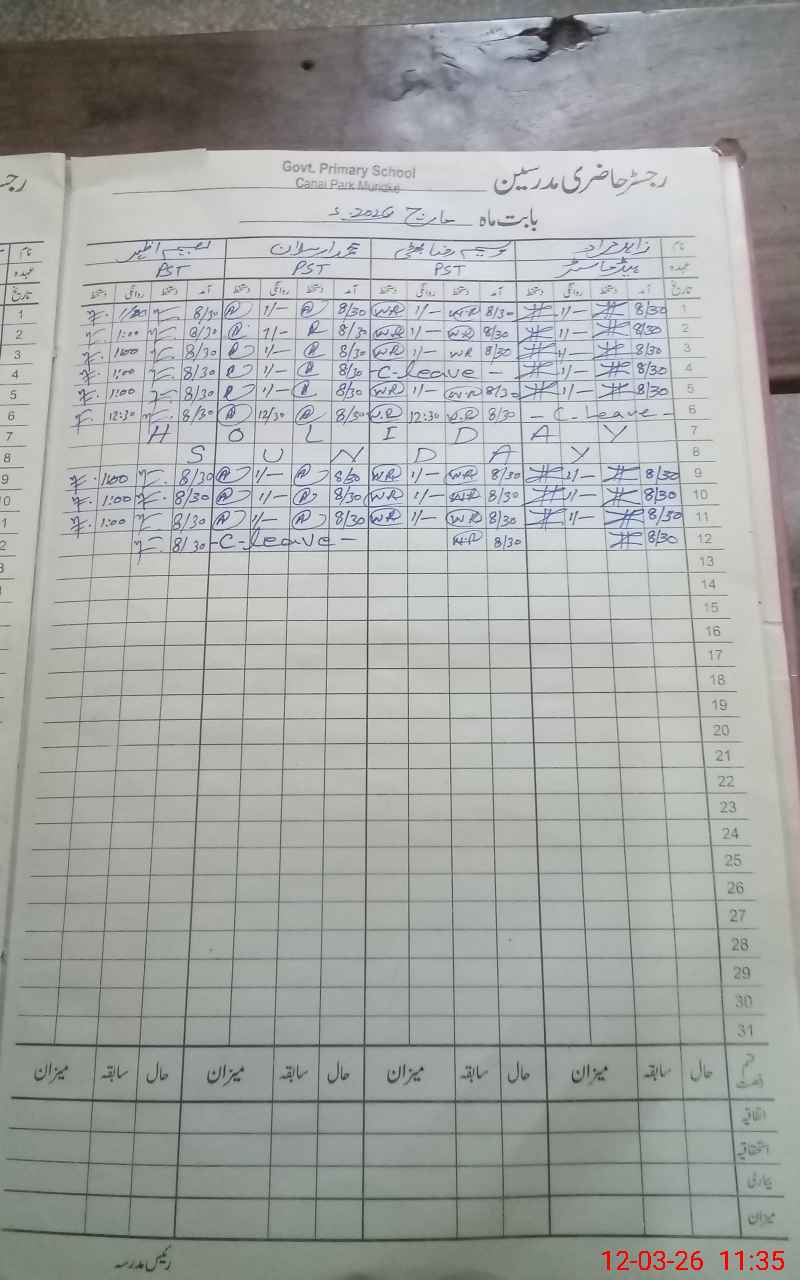 Govt. Primary School
Canal Park Muridke
رجسٹر حاضری مدرسین
بابت ماہ مارچ 2026ء
نام زاہد مراد وسیم رضا بھٹی محمد ارسلان
عہدہ ہیڈماسٹر PST PST PST
تاریخ آمد دستخط روانگی دستخط آمد دستخط روانگی دستخط آمد دستخط روانگی دستخط آمد دستخط روانگی دستخط
1 8/30 1/- 8/30 WR 1/- WR 8/30 1/- 8/30 1/00
2 8/30 1/- 8/30 WR 1/- WR 8/30 1/- 8/30 1:00
3 8/30 1/- 8/30 WR 1/- WR 8/30 1/- 8/30 1:00
4 8/30 1/- - C-leave - 8/30 1/- 8/30 1:00
5 8/30 1/- 8/30 WR 1/- WR 8/30 1/- 8/30 1:00
6 - C-leave - 8/30 WR 12:30 WR 8/30 12/30 8/30 12:30
7 HOLIDAY
8 SUNDAY
9 8/30 1/- 8/30 WR 1/- WR 8/30 1/- 8/30 1:00
10 8/30 1/- 8/30 WR 1/- WR 8/30 1/- 8/30 1:00
11 8/30 1/- 8/30 WR 1/- WR 8/30 1/- 8/30 1:00
12 8/30 8/30 WR - C-leave - 8/30
13
14
15
16
17
18
19
20
21
22
23
24
25
26
27
28
29
30
31
قسم رخصت حال سابقہ میزان حال سابقہ میزان حال سابقہ میزان حال سابقہ میزان
اتفاقیہ
استحقاقیہ
بیماری
میزان
رئیس مدرسہ
12-03-26 11:35